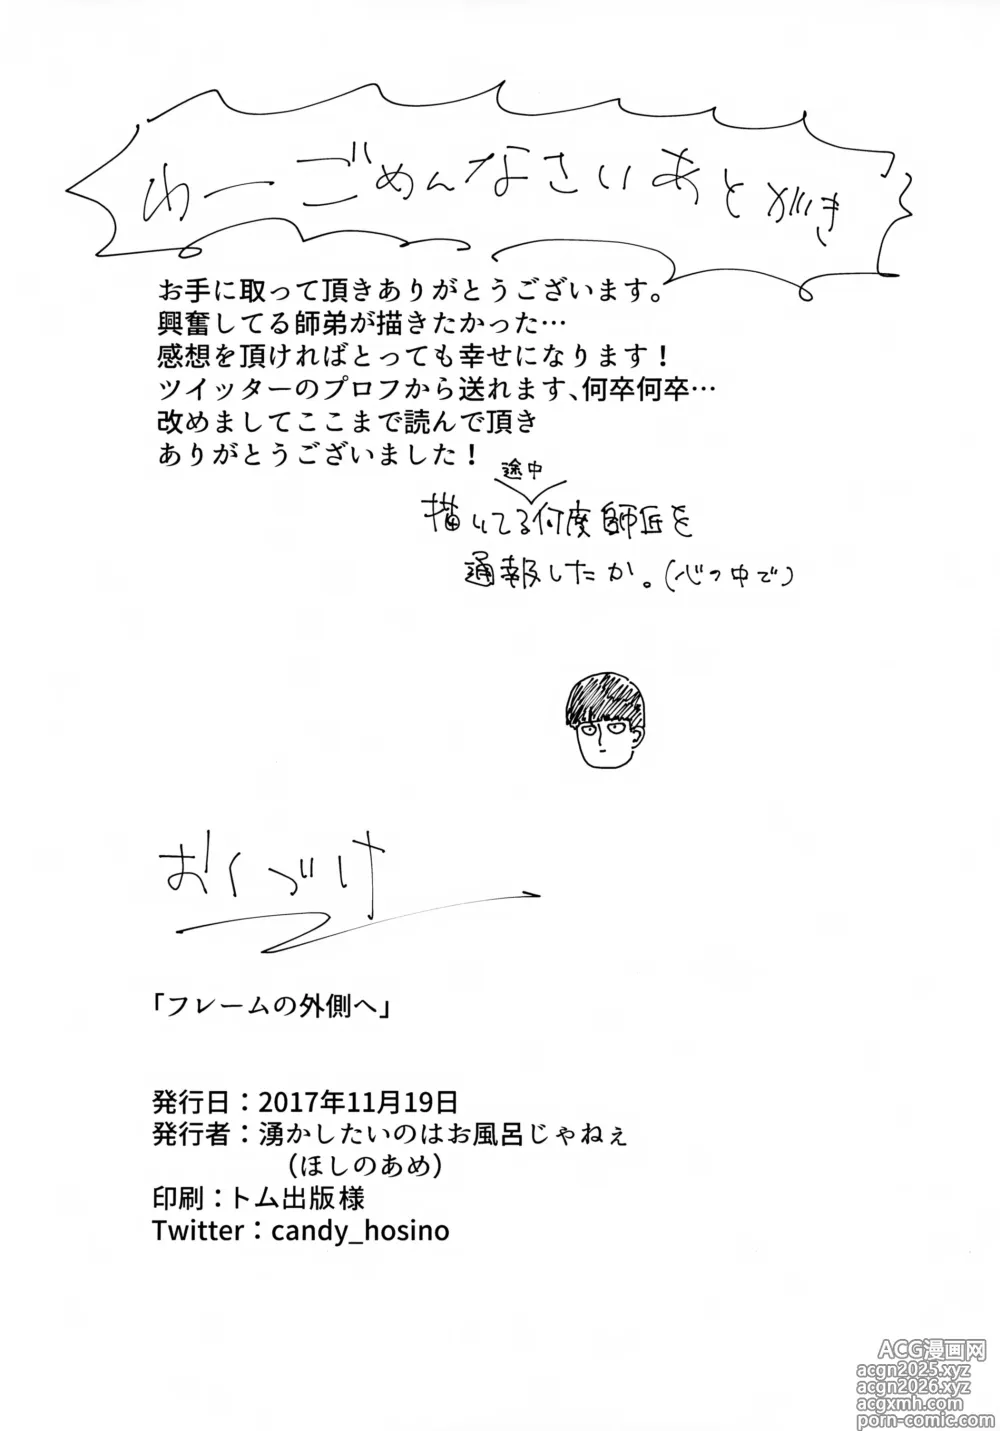 わーごめんなさいあとがき
お手に取って頂きありがとうございます。
興奮してる師弟が描きたかった…
感想を頂ければとっても幸せになります！
ツイッターのプロフから送れます、何卒何卒…
改めましてここまで読んで頂き
ありがとうございました！
途中
描いてる何度師匠を
通報したか。(心の中で)
おくづけ
「フレームの外側へ」
発行日：2017年11月19日
発行者：湧かしたいのはお風呂じゃねぇ
（ほしのあめ）
印刷：トム出版様
Twitter：candy_hosino
ACG漫画网
acgn2025.xyz
acgn2026.xyz
acgxmh.com
porn-comic.com